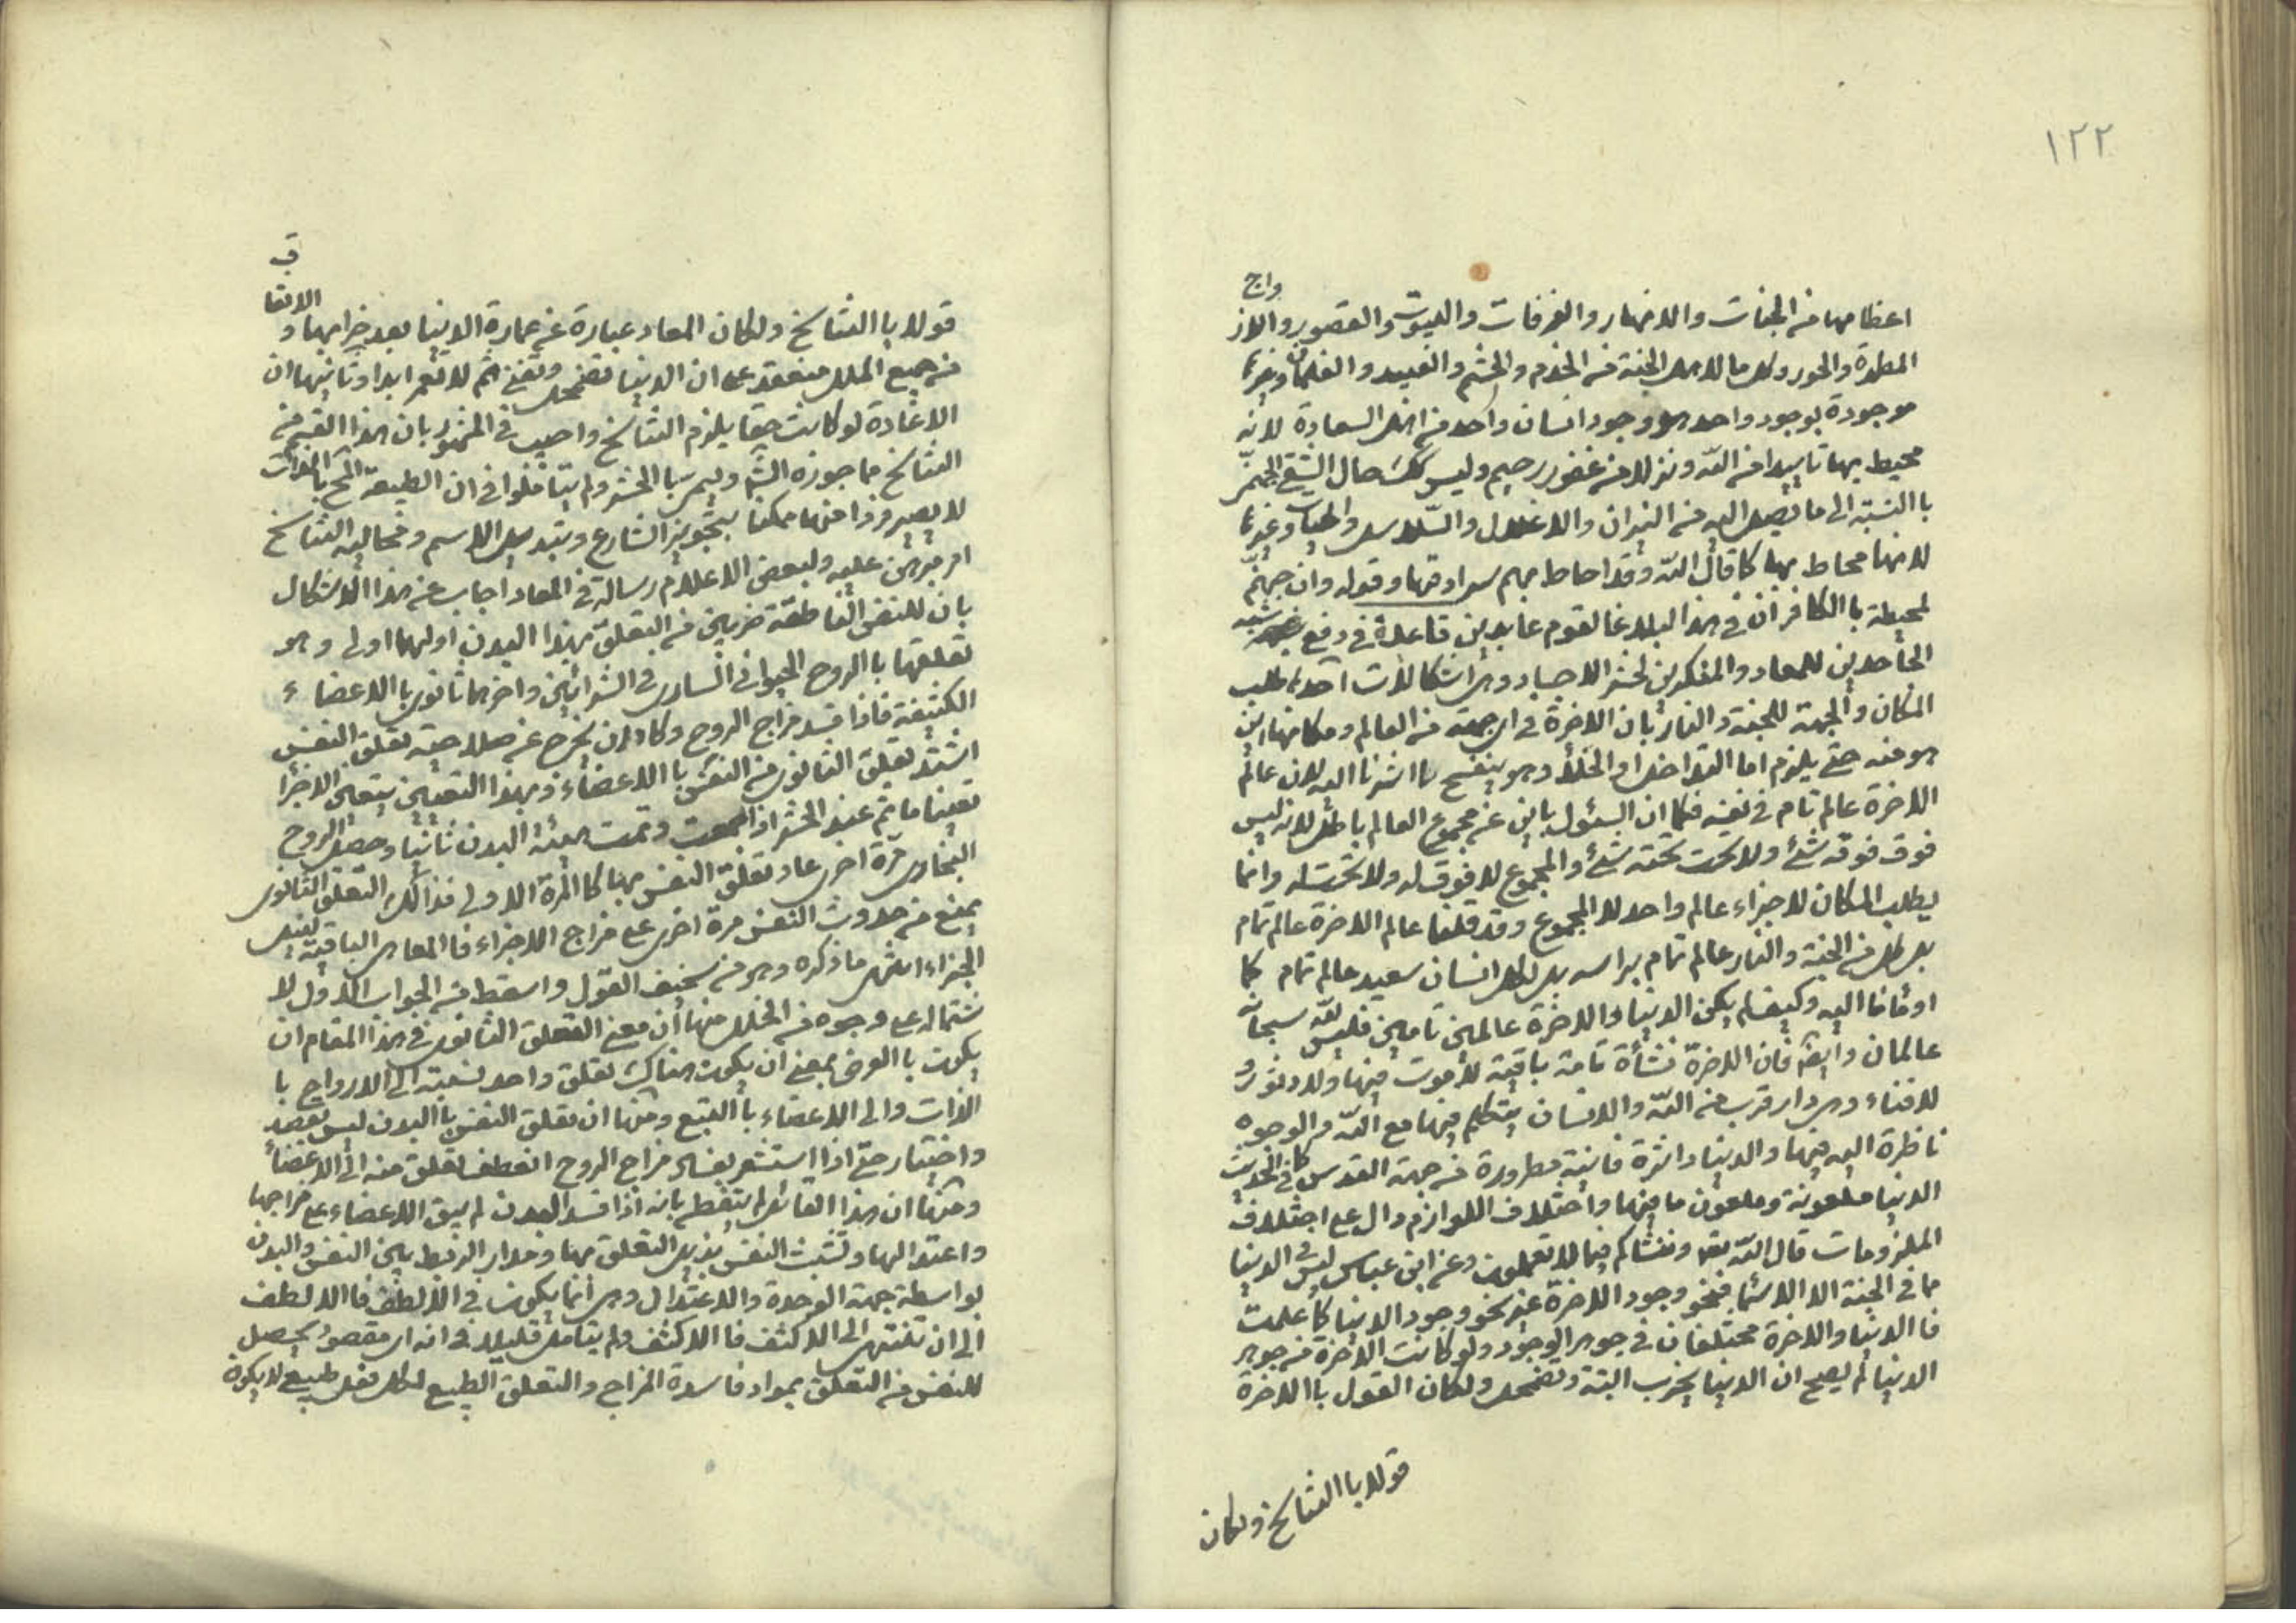 ١٢٢
واج
اعظامها من الجنات والانهار والغرفات والبيوت والقصور والاز
المطهرة والحور وكل ما لاهل الجنة من الخدم والحشم والعبيد والغلمان وغيرها
موجودة بوجود واحد هو وجود انسان واحد من اهل السعادة لانه
محيط بها تاييدا من الله ونزلا من غفور رحيم وليس كك حال الشقي الجهنمي
باالنسبة الى ما يصل اليه من النيران والاغلال والسلاسل والحيات وغيرها
لانها محاط بها كما قال الله وقد احاط بهم سرادقها وقوله وان جهنم
لمحيطة باالكافر ان في هذا البلاغا لقوم عابدين قاعدة في دفع شبه
الجاحدين للمعاد والمنكرين لحشر الاجساد وهي اشكالات احدها طلب
المكان والجهة للجنة والنار بان الاخرة في اي جهة من العالم ومكانها اين
هو منه حتى يلزم اما التداخل او الخلأ وهو ينفسح بما اشرنا اليه لان عالم
الاخرة عالم تام في نفسه فكما ان السئول باين عن مجموع العالم باطل لانه ليس
فوق فوقه شئ ولا تحت تحته شئ والمجموع لا فوق له ولا تحت له وانما
يطلب المكان لاجزاء عالم واحد لا المجموع وقد قلنا عالم الاخرة عالم تام
بل كل من الجنة والنار عالم تام براسه بل لكل انسان سعيد عالم تام كما
اومأنا اليه وكيف لم يكن الدنيا والاخرة عالمين تامين فليس لله سبحانه
عالمان وايضا فان الاخرة نشأة تامة باقية لا موت فيها ولا دثور و
لا فناء وهي دار قرب من الله والانسان يتكلم فيها مع الله والوجوه
ناظرة اليه فيها والدنيا داثرة فانية مطرودة من جهة القدس كما في الحديث
الدنيا ملعونة وملعون ما فيها واختلاف اللوازم دال على اختلاف
الملزومات قال الله تعه وننشاكم فيما لا تعلمون وعن ابن عباس ليس في الدنيا
مما في الجنة الا الاسماء فنحو وجود الاخرة غير نحو وجود الدنيا كما علمت
فا الدنيا والاخرة مختلفان في جوهر الوجود ولو كانت الاخرة من جوهر
الدنيا لم يصح ان الدنيا يخرب البتة وتضمحل ولكان القول باالاخرة
قولا باالتناسخ ولكان
ق
الاتفا
قولا باالتناسخ ولكان المعاد عبارة عن عمارة الدنيا بعد خرابها و
من جميع الملل منعقد على ان الدنيا تضمحل وتفنى ثم لا تعمر ابدا وثانيها ان
الاعادة لو كانت حقا يلزم التناسخ واجيب في المشهور بان هذا القسم من
التناسخ مما جوزه الشرع وليسمى باالحشر ولم يتاملوا في ان الطبيعة المح باالذات
لا يصير فردا منها ممكنا بتجويز الشارع وبتبديل الاسم ومحالية التناسخ
امر مبرهن عليه ولبعض الاعلام رسالة في المعاد اجاب عن هذا الاشكال
بان للنفس الناطقة ضربين من التعلق بهذا البدن اولهما اولى وهو
تعلقها باالروح الحيواني الساري في الشرائين واخرهما ثانوي باالاعضاء
الكثيفة فاذا فسد مزاج الروح وكاد ان يخرج عن صلاحية تعلق النفس
اشتد تعلق الثانوي من النفس باالاعضاء وبهذا التعين يتعين الاجزا
تعينا ما ثم عند الحشر اذا جمعت وتمت هيئة البدن ثانيا وحصل الروح
البخاري مرة اخرى عاد تعلق النفس بها كالمرة الاولى فذالك التعلق الثانوي
يمنع من حدوث النفس مرة اخرى على مزاج الاجزاء فاالمعاد هي الباقية لنيل
الجزاء انتهى ما ذكره وهو من سخيف القول واسقط من الجواب الاول لا
شتماله على وجوه من الخلل منها ان معنى التعلق الثانوي في هذا المقام ان
يكون باالعرض بمعنى ان يكون هناك تعلق واحد نسبته الى الارواح با
الذات والى الاعضاء باالتبع ومنها ان تعلق النفس باالبدن ليس بقصد
واختيار حتى اذا استشعر بفساد مزاج الروح انعطف تعلق منه الى الاعضاء
ومنها ان هذا القائل لم يتفطن بانه اذا فسد البدن لم يبق الاعضاء على مزاجها
واعتدالها وتشبث النفس بذيل التعلق بها ومدار الرابط بين النفس والبدن
بواسطة جهة الوحدة والاعتدال وهي انما يكون في الالطف فاالالطف
الى ان تنتهي الى الاكثف فا الاكثف ولم يتامل قليلا في انه اي مقصود يحصل
للنفس من التعلق بمواد فاسدة المزاج والتعلق الطبيعي لكل نفس طبيعي لا يكون